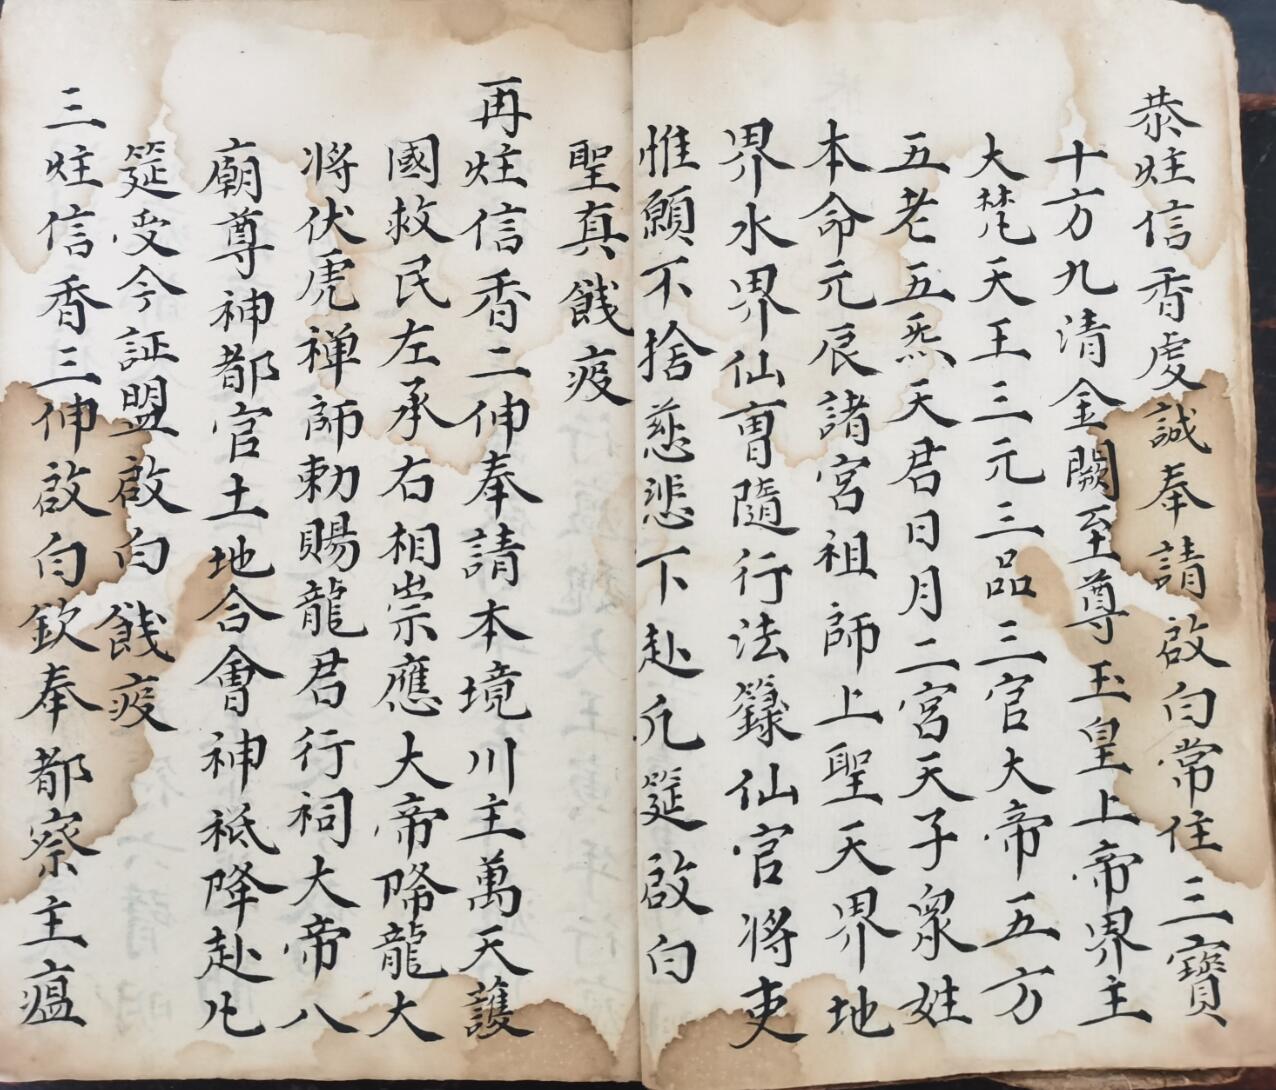 恭炷信香虔誠奉請啟白常住三寶
十方九清金闕至尊玉皇上帝界主
大梵天王三元三品三官大帝五方
五老五炁天君日月二宮天子眾姓
本命元辰諸宮祖師上聖天界地
界水界仙曹隨行法籙仙官將吏
惟願不捨慈悲下赴凡筵啟白
聖真餞疫
再炷信香二伸奉請本境川主萬天護
國救民左承右相崇應大帝降龍大
將伏虎禅師勅賜龍君行祠大帝八
廟尊神都官土地合會神祇降赴凡
筵受今証盟啟白餞疫
三炷信香三伸啟白欽奉都察主瘟